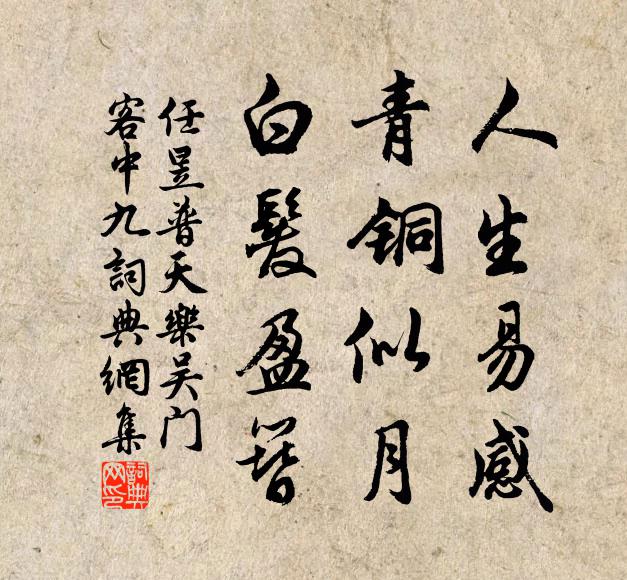 人生易感
青铜似月
白髮盈簪
任昱普天樂吴门
客中九詞典網集
詞典网印